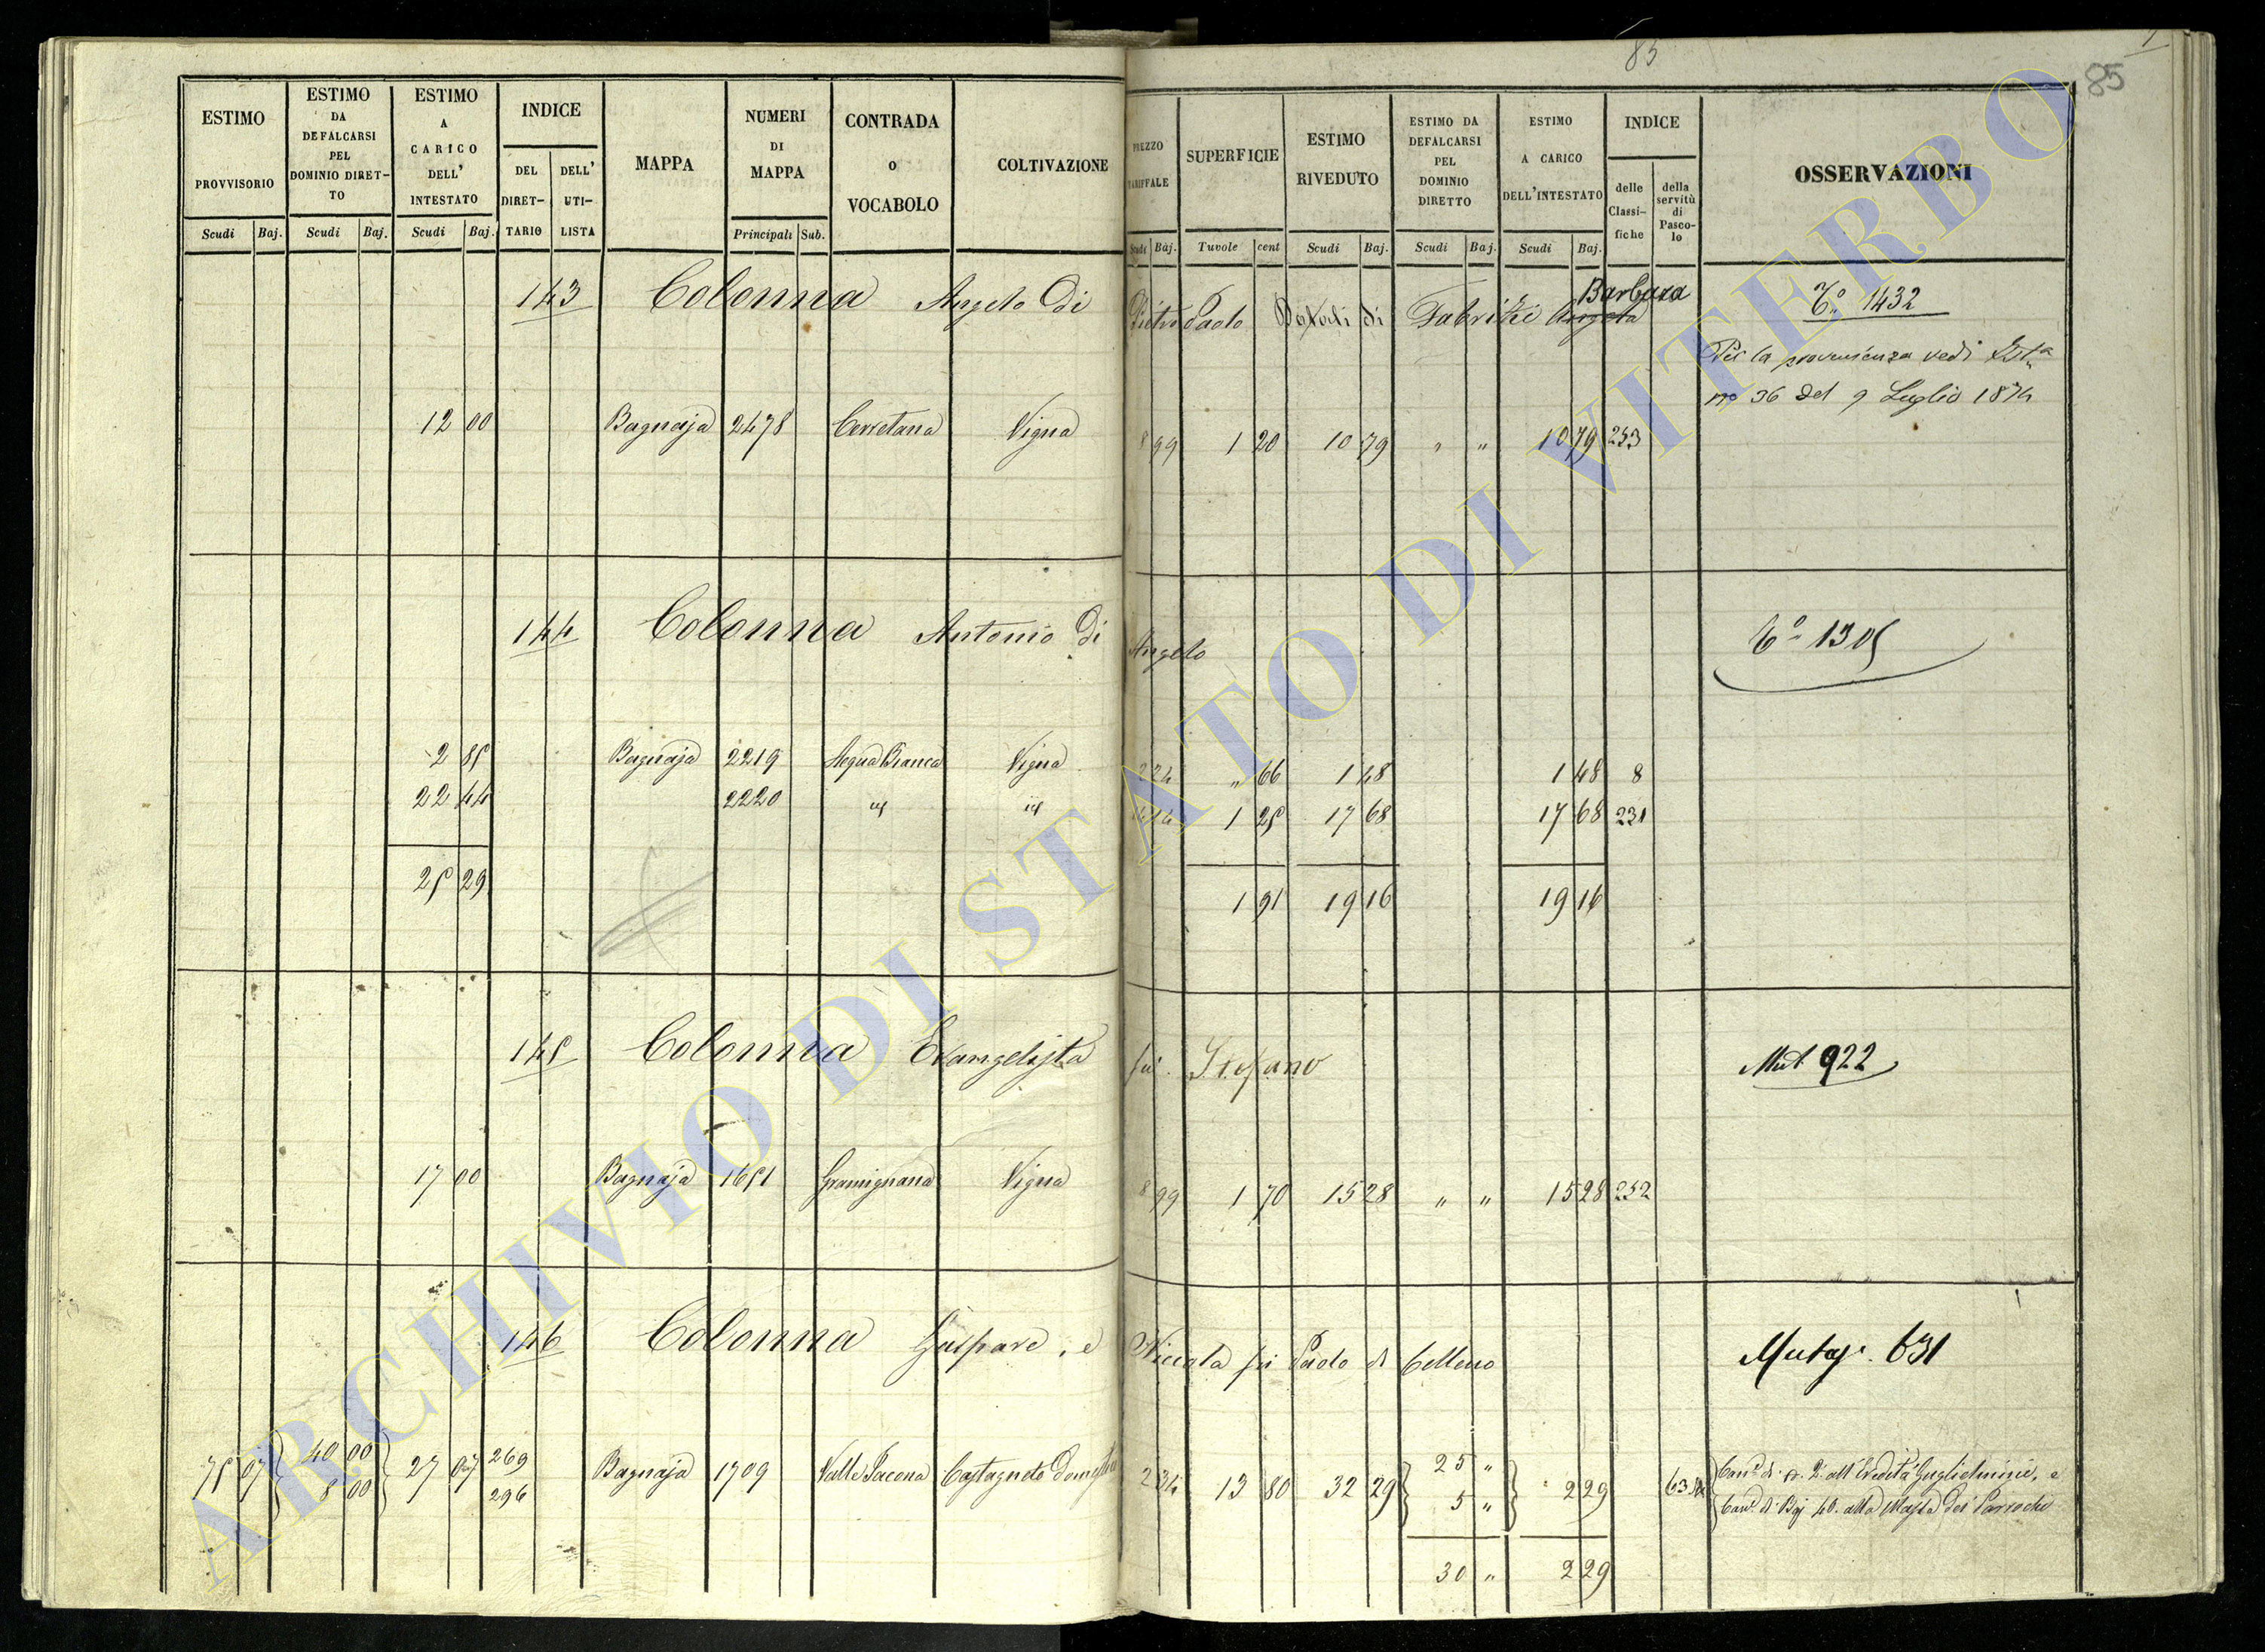 85
85
ESTIMO PROVVISORIO
ESTIMO DA DEFALCARSI PEL DOMINIO DIRET-TO
ESTIMO A CARICO DELL' INTESTATO
INDICE
DEL DIRET-TARIO
DELL' UTI-LISTA
MAPPA
NUMERI DI MAPPA
CONTRADA o VOCABOLO
COLTIVAZIONE
PREZZO TARIFFALE
SUPERFICIE
ESTIMO RIVEDUTO
ESTIMO DA DEFALCARSI PEL DOMINIO DIRETTO
ESTIMO A CARICO DELL'INTESTATO
INDICE
delle Classi-fiche
della servitù di Pasco-lo
OSSERVAZIONI
Scudi Baj. Scudi Baj. Scudi Baj. Principali Sub. Scudi Baj. Tavole cent Scudi Baj. Scudi Baj. Scudi Baj.
Barbara
143 Colonna Angelo Di Pietro Paolo Dotali di Fabrizi Angela 1432
Per la provenienza vedi
no 36 del 9 Luglio 1874
12 00 Bagnaja 2478 Cerretana Vigna 8 99 1 20 10 79 " " 10 79 253
144 Colonna Antonio Di Angelo 1305
2 85 Bagnaja 2219 Acqua Bianca Vigna 2 24 " 66 1 48 1 48 8
22 44 2220 id id 1 25 17 68 17 68 231
25 29 1 91 19 16 19 16
145 Colonna Evangelista fu Stefano Mut. 922
17 00 Bagnaja 1651 Gramignana Vigna 8 99 1 70 15 28 " " 15 28 252
146 Colonna Gaspare, e Niccola fu Paolo di Celleno Mutaz. 631
75 07 40 00 27 07 269 Bagnaja 1709 Valle Pacena Castagneto Domestico 2 34 13 80 32 29 25 " 2 29 63 Can.e di sc. 2. all'Eredità Guglielmini, e
8 00 296 5 " Can.e di Baj 40. alla Massa dei Parrochi
30 " 2 29
ARCHIVIO DI STATO DI VITERBO